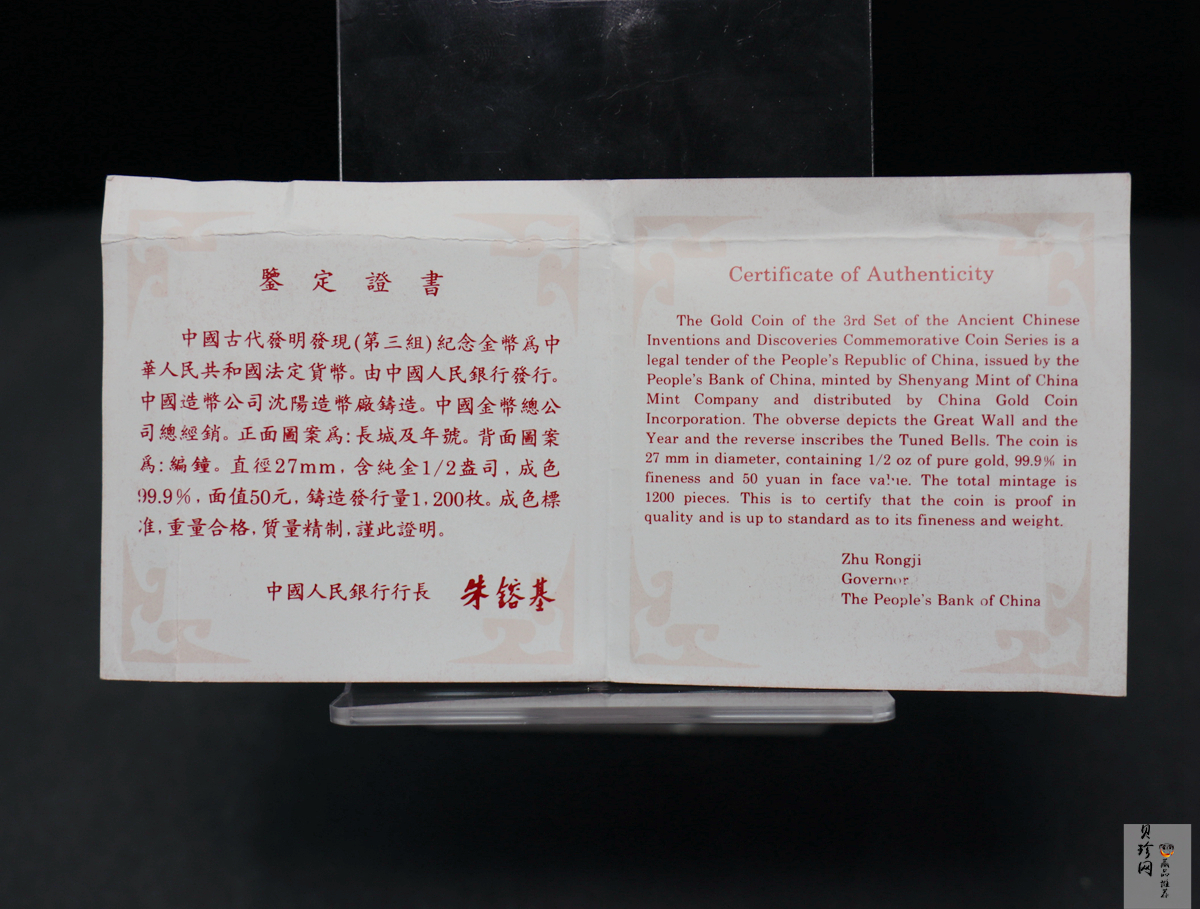 鑒定證書
中國古代發明發現(第三組)紀念金幣爲中
華人民共和國法定貨幣。由中國人民銀行發行。
中國造幣公司沈陽造幣廠鑄造。中國金幣總公
司總經銷。正面圖案爲:長城及年號。背面圖案
爲:編鐘。直徑27mm,含純金1/2盎司,成色
99.9%,面值50元,鑄造發行量1,200枚。成色標
准,重量合格,質量精制,謹此證明。
中國人民銀行行長 朱鎔基
Certificate of Authenticity
The Gold Coin of the 3rd Set of the Ancient Chinese
Inventions and Discoveries Commemorative Coin Series is a
legal tender of the People's Republic of China, issued by the
People's Bank of China, minted by Shenyang Mint of China
Mint Company and distributed by China Gold Coin
Incorporation. The obverse depicts the Great Wall and the
Year and the reverse inscribes the Tuned Bells. The coin is
27 mm in diameter, containing 1/2 oz of pure gold, 99.9% in
fineness and 50 yuan in face value. The total mintage is
1200 pieces. This is to certify that the coin is proof in
quality and is up to standard as to its fineness and weight.
Zhu Rongji
Governor
The People's Bank of China
贝珍网
藏品推荐